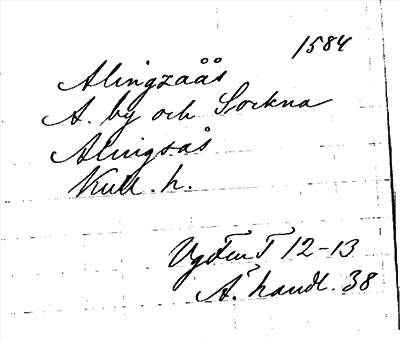 1584
Alingzåås
A. by och Sockna
Alingsås
Kull. h.
12-13
Ä. handl. 38